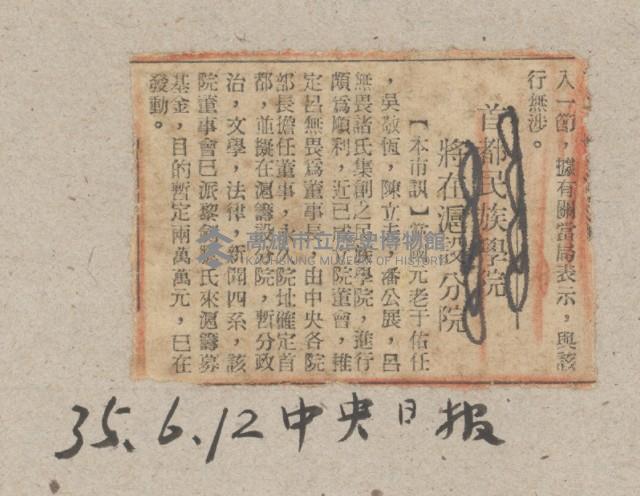 入一節，據有關當局表示，與該
行無涉。
首都民族學院
將在滬設分院
【本市訊】黨國元老于佑任
，吳敬恆，陳立夫，潘公展，呂
無畏諸氏集創之民族學院，進行
頗爲順利，近已成立院董會，推
定呂無畏爲董事長，由中央各院
部長擔任董事，永久院址確定首
都，並擬在滬籌設分院，暫分政
治，文學，法律，新聞四系，該
院董事會已派黎 氏來滬籌募
基金，目的暫定兩萬萬元，已在
發動。
高雄市立歷史博物館
KAOHSIUNG MUSEUM OF HISTORY
35.6.12中央日报